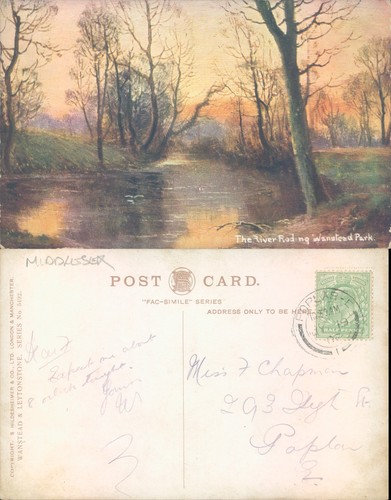 The River Roding Wanstead Park.
MIDDLESEX
POST CARD.
"FAC-SIMILE" SERIES
ADDRESS ONLY TO BE HERE.
COPYRIGHT. S. HILDESHEIMER & CO., LTD. LONDON & MANCHESTER.
WANSTEAD & LEYTONSTONE. SERIES No. 5492.
HALFPENNY
Expect me about
8 o'clock tonight.
Yours
W
Miss F Chapman
293 High St
Poplar
E